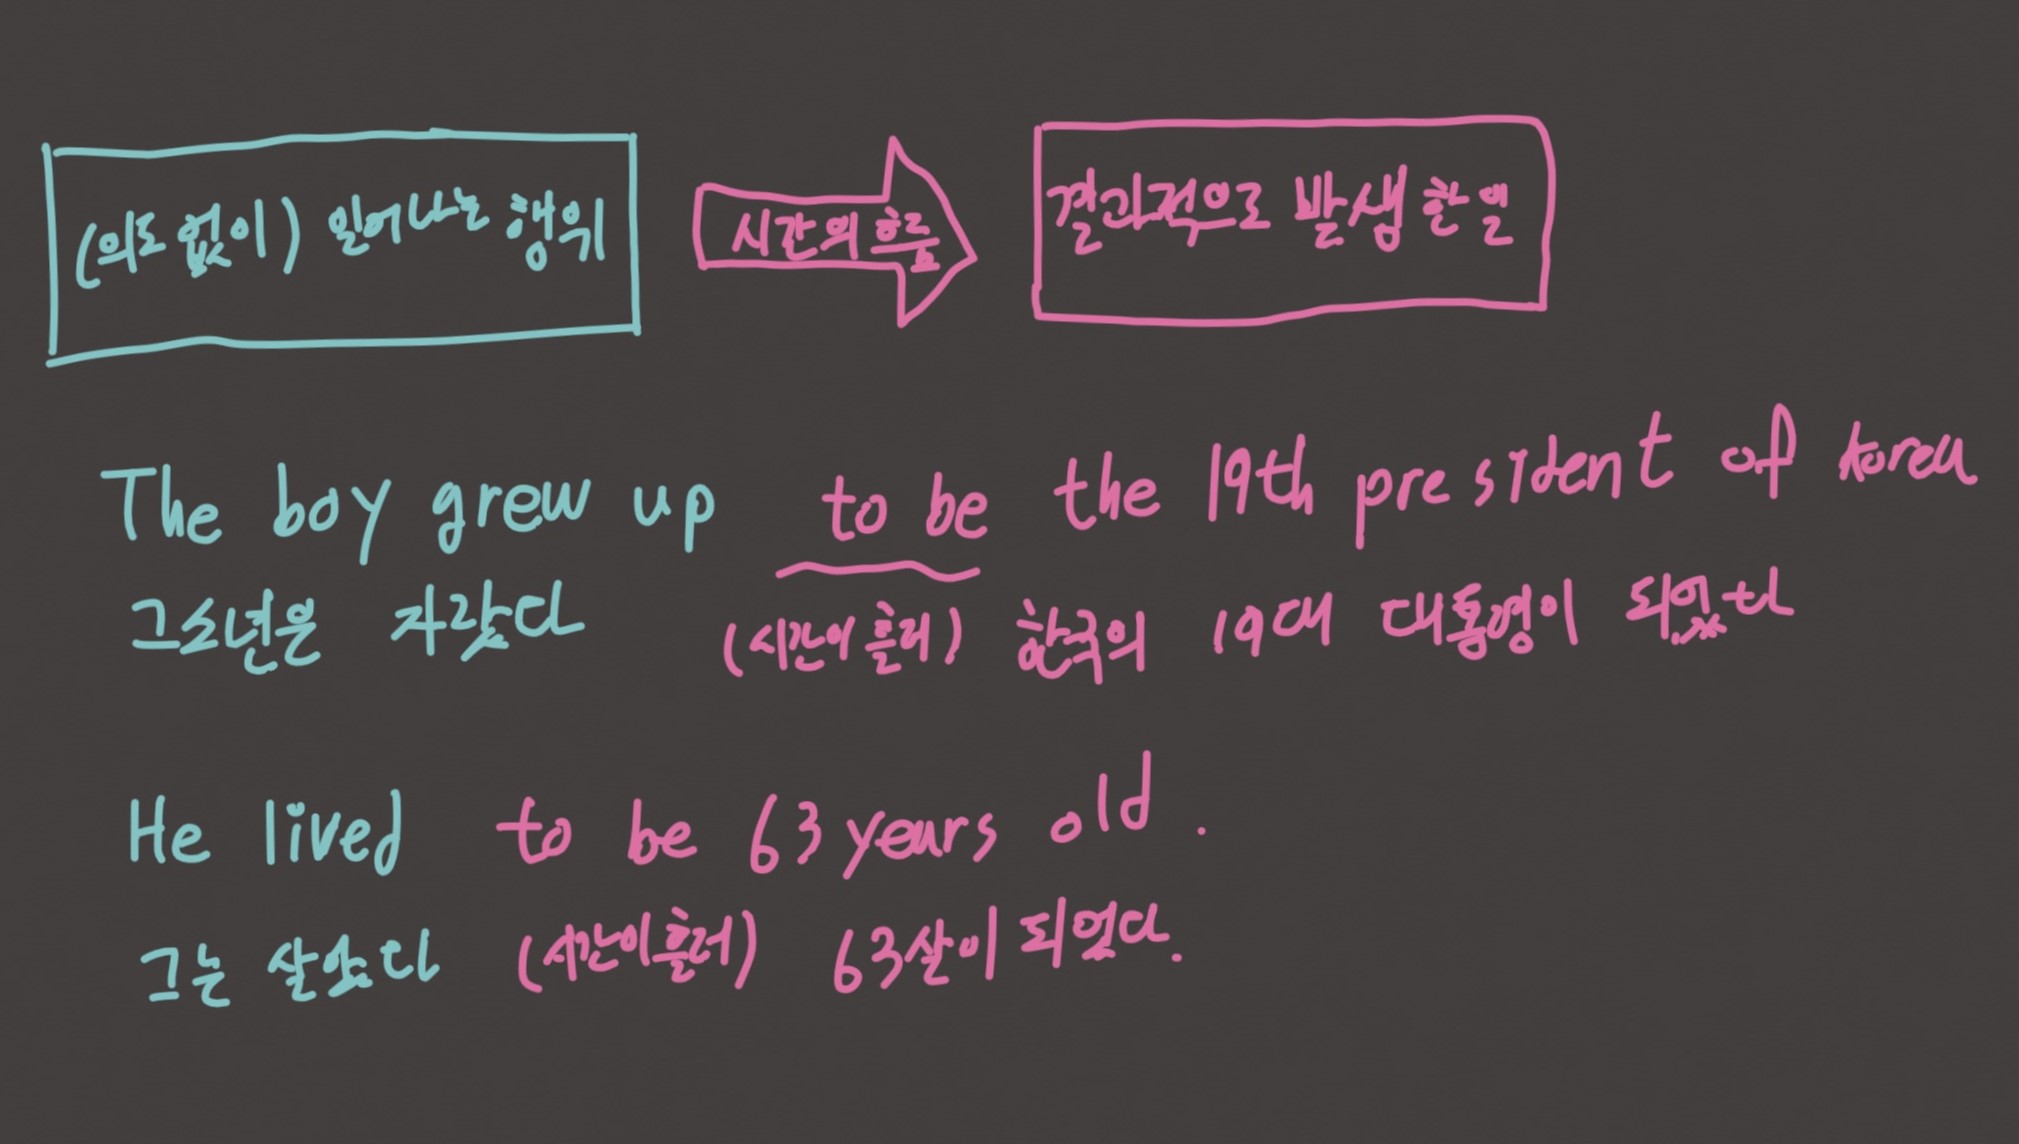 (의도 없이) 일어나는 행위
시간의 흐름
결과적으로 발생한 일
The boy grew up to be the 19th president of korea
그소년은 자랐다 (시간이 흘러) 한국의 19대 대통령이 되었다
He lived to be 63 years old.
그는 살았다 (시간이 흘러) 63살이 되었다.